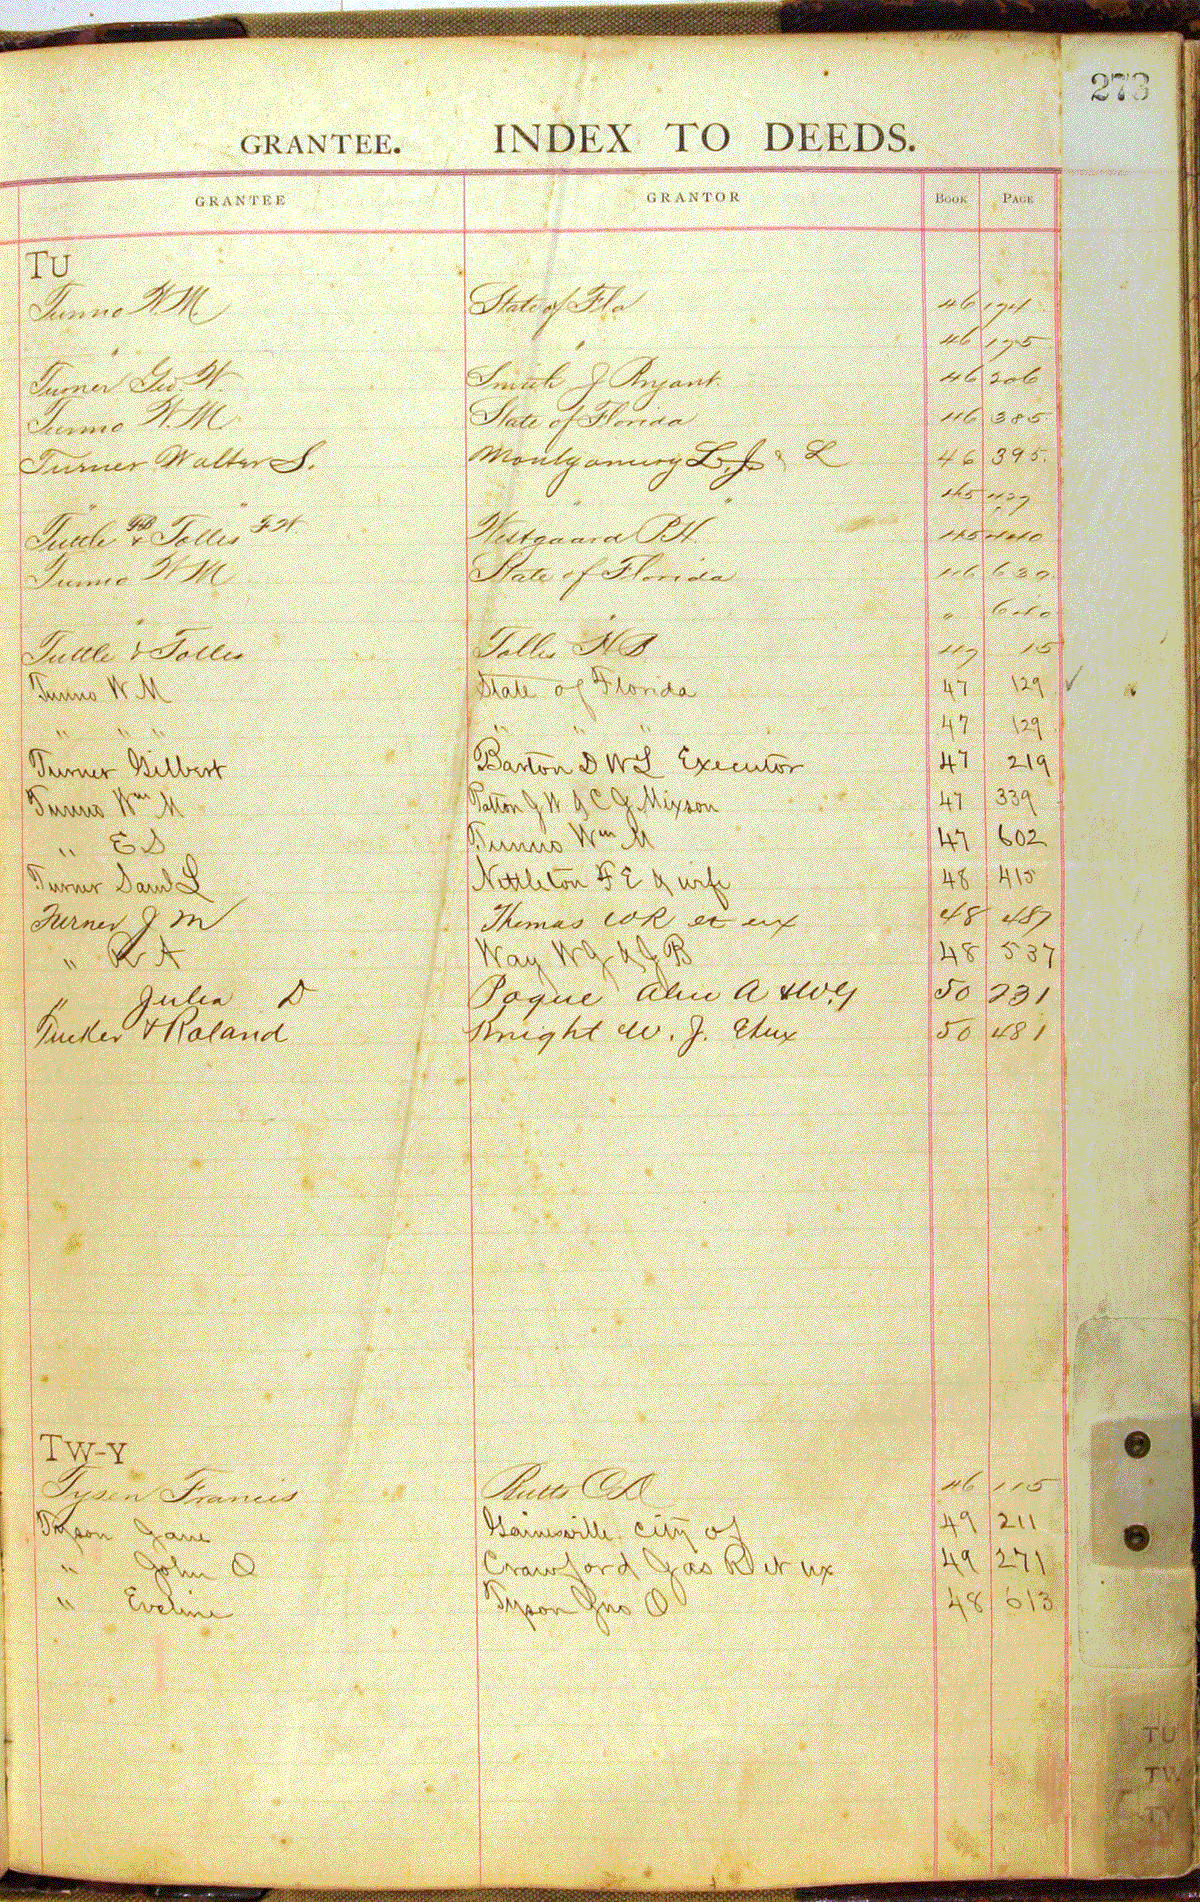 273
GRANTEE. INDEX TO DEEDS.
GRANTEE GRANTOR BOOK PAGE
TU
Tunno W.M. State of Fla 46 174
" " 46 175
Turner Geo. W. Smith J Bryant. 46 206
Tunno W.M State of Florida 46 385.
Turner Walter S. Montgomery L.J. & L 46 395.
" " " " 45 427
Tuttle FB & Tolles F.W. Westgaard P.H. 45 440
Tunno W M State of Florida 46 639.
" " " 640
Tuttle & Tolles Tolles H B. 47 15
Tunno W M State of Florida 47 129
" " " " " " 47 129
Turner Gilbert Barton D W L Executor 47 219
Tunno Wm M Patton J W & C J Mixson 47 339
" E S Tunno Wm M 47 602
Turner Saml L Nettleton F E & wife 48 415
Turner J M Thomas W R et ux 48 487
" R A Way W J & J B 48 537
" Julia D Pogue Alice A & W.Y 50 231
Tucker & Roland Knight W. J. Etux 50 481
TW-Y
Tysen Francis Butts O A 46 115
Tyson Jane Gainesville, city of 49 211
" John O Crawford Jas R et ux 49 271
" Eveline Tyson Jno O 48 613
TU
TW
TY